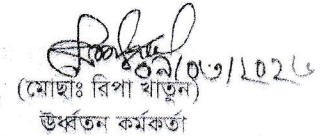 ০৯/০৩/২০২৬
(মোছাঃ রিপা খাতুন)
ঊর্ধ্বতন কর্মকর্তা